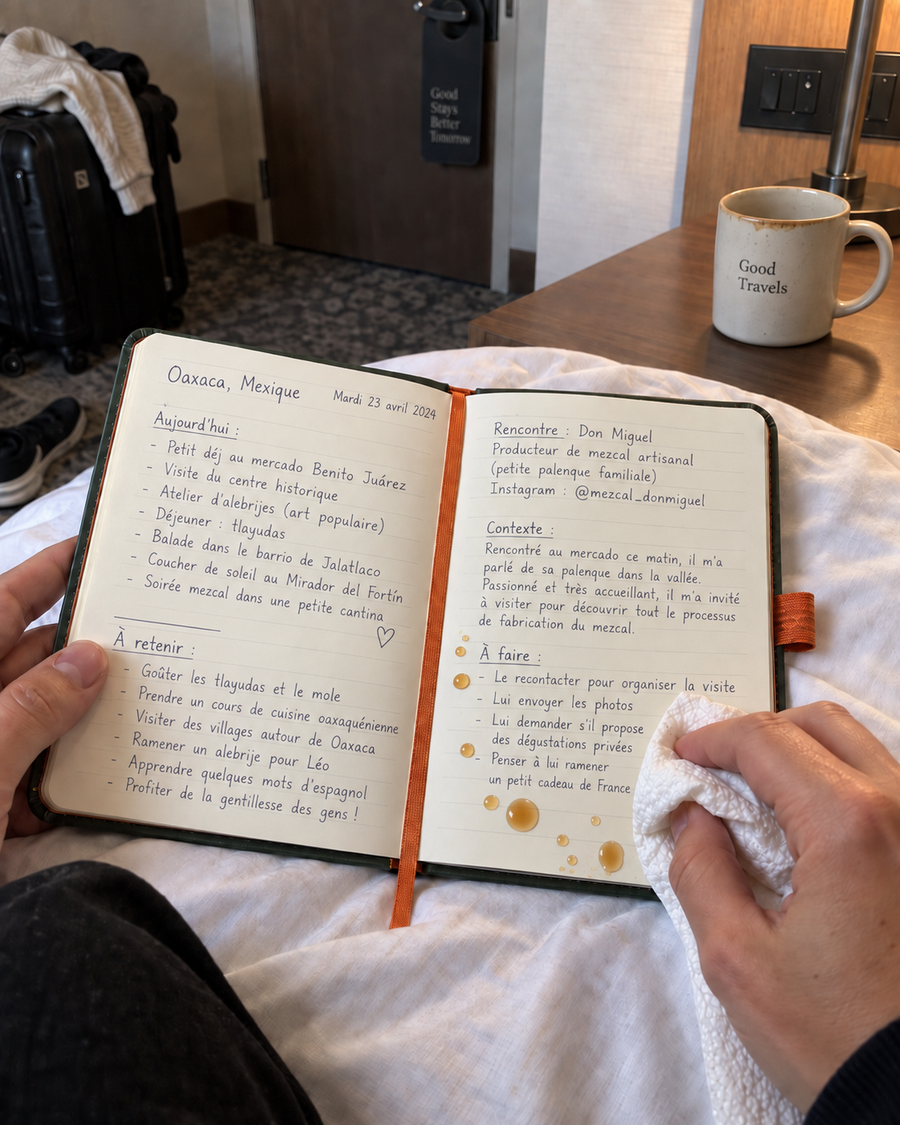 Good
Stays
Better
Tomorrow
Good
Travels
Oaxaca, Mexique
Mardi 23 avril 2024
Aujourd'hui :
- Petit déj au mercado Benito Juárez
- Visite du centre historique
- Atelier d'alebrijes (art populaire)
- Déjeuner : tlayudas
- Balade dans le barrio de Jalatlaco
- Coucher de soleil au Mirador del Fortín
- Soirée mezcal dans une petite cantina
À retenir :
- Goûter les tlayudas et le mole
- Prendre un cours de cuisine oaxaquénienne
- Visiter des villages autour de Oaxaca
- Ramener un alebrije pour Léo
- Apprendre quelques mots d'espagnol
- Profiter de la gentillesse des gens !
Rencontre : Don Miguel
Producteur de mezcal artisanal
(petite palenque familiale)
Instagram : @mezcal_donmiguel
Contexte :
Rencontré au mercado ce matin, il m'a
parlé de sa palenque dans la vallée.
Passionné et très accueillant, il m'a invité
à visiter pour découvrir tout le processus
de fabrication du mezcal.
À faire :
- Le recontacter pour organiser la visite
- Lui envoyer les photos
- Lui demander s'il propose
des dégustations privées
- Penser à lui ramener
un petit cadeau de France